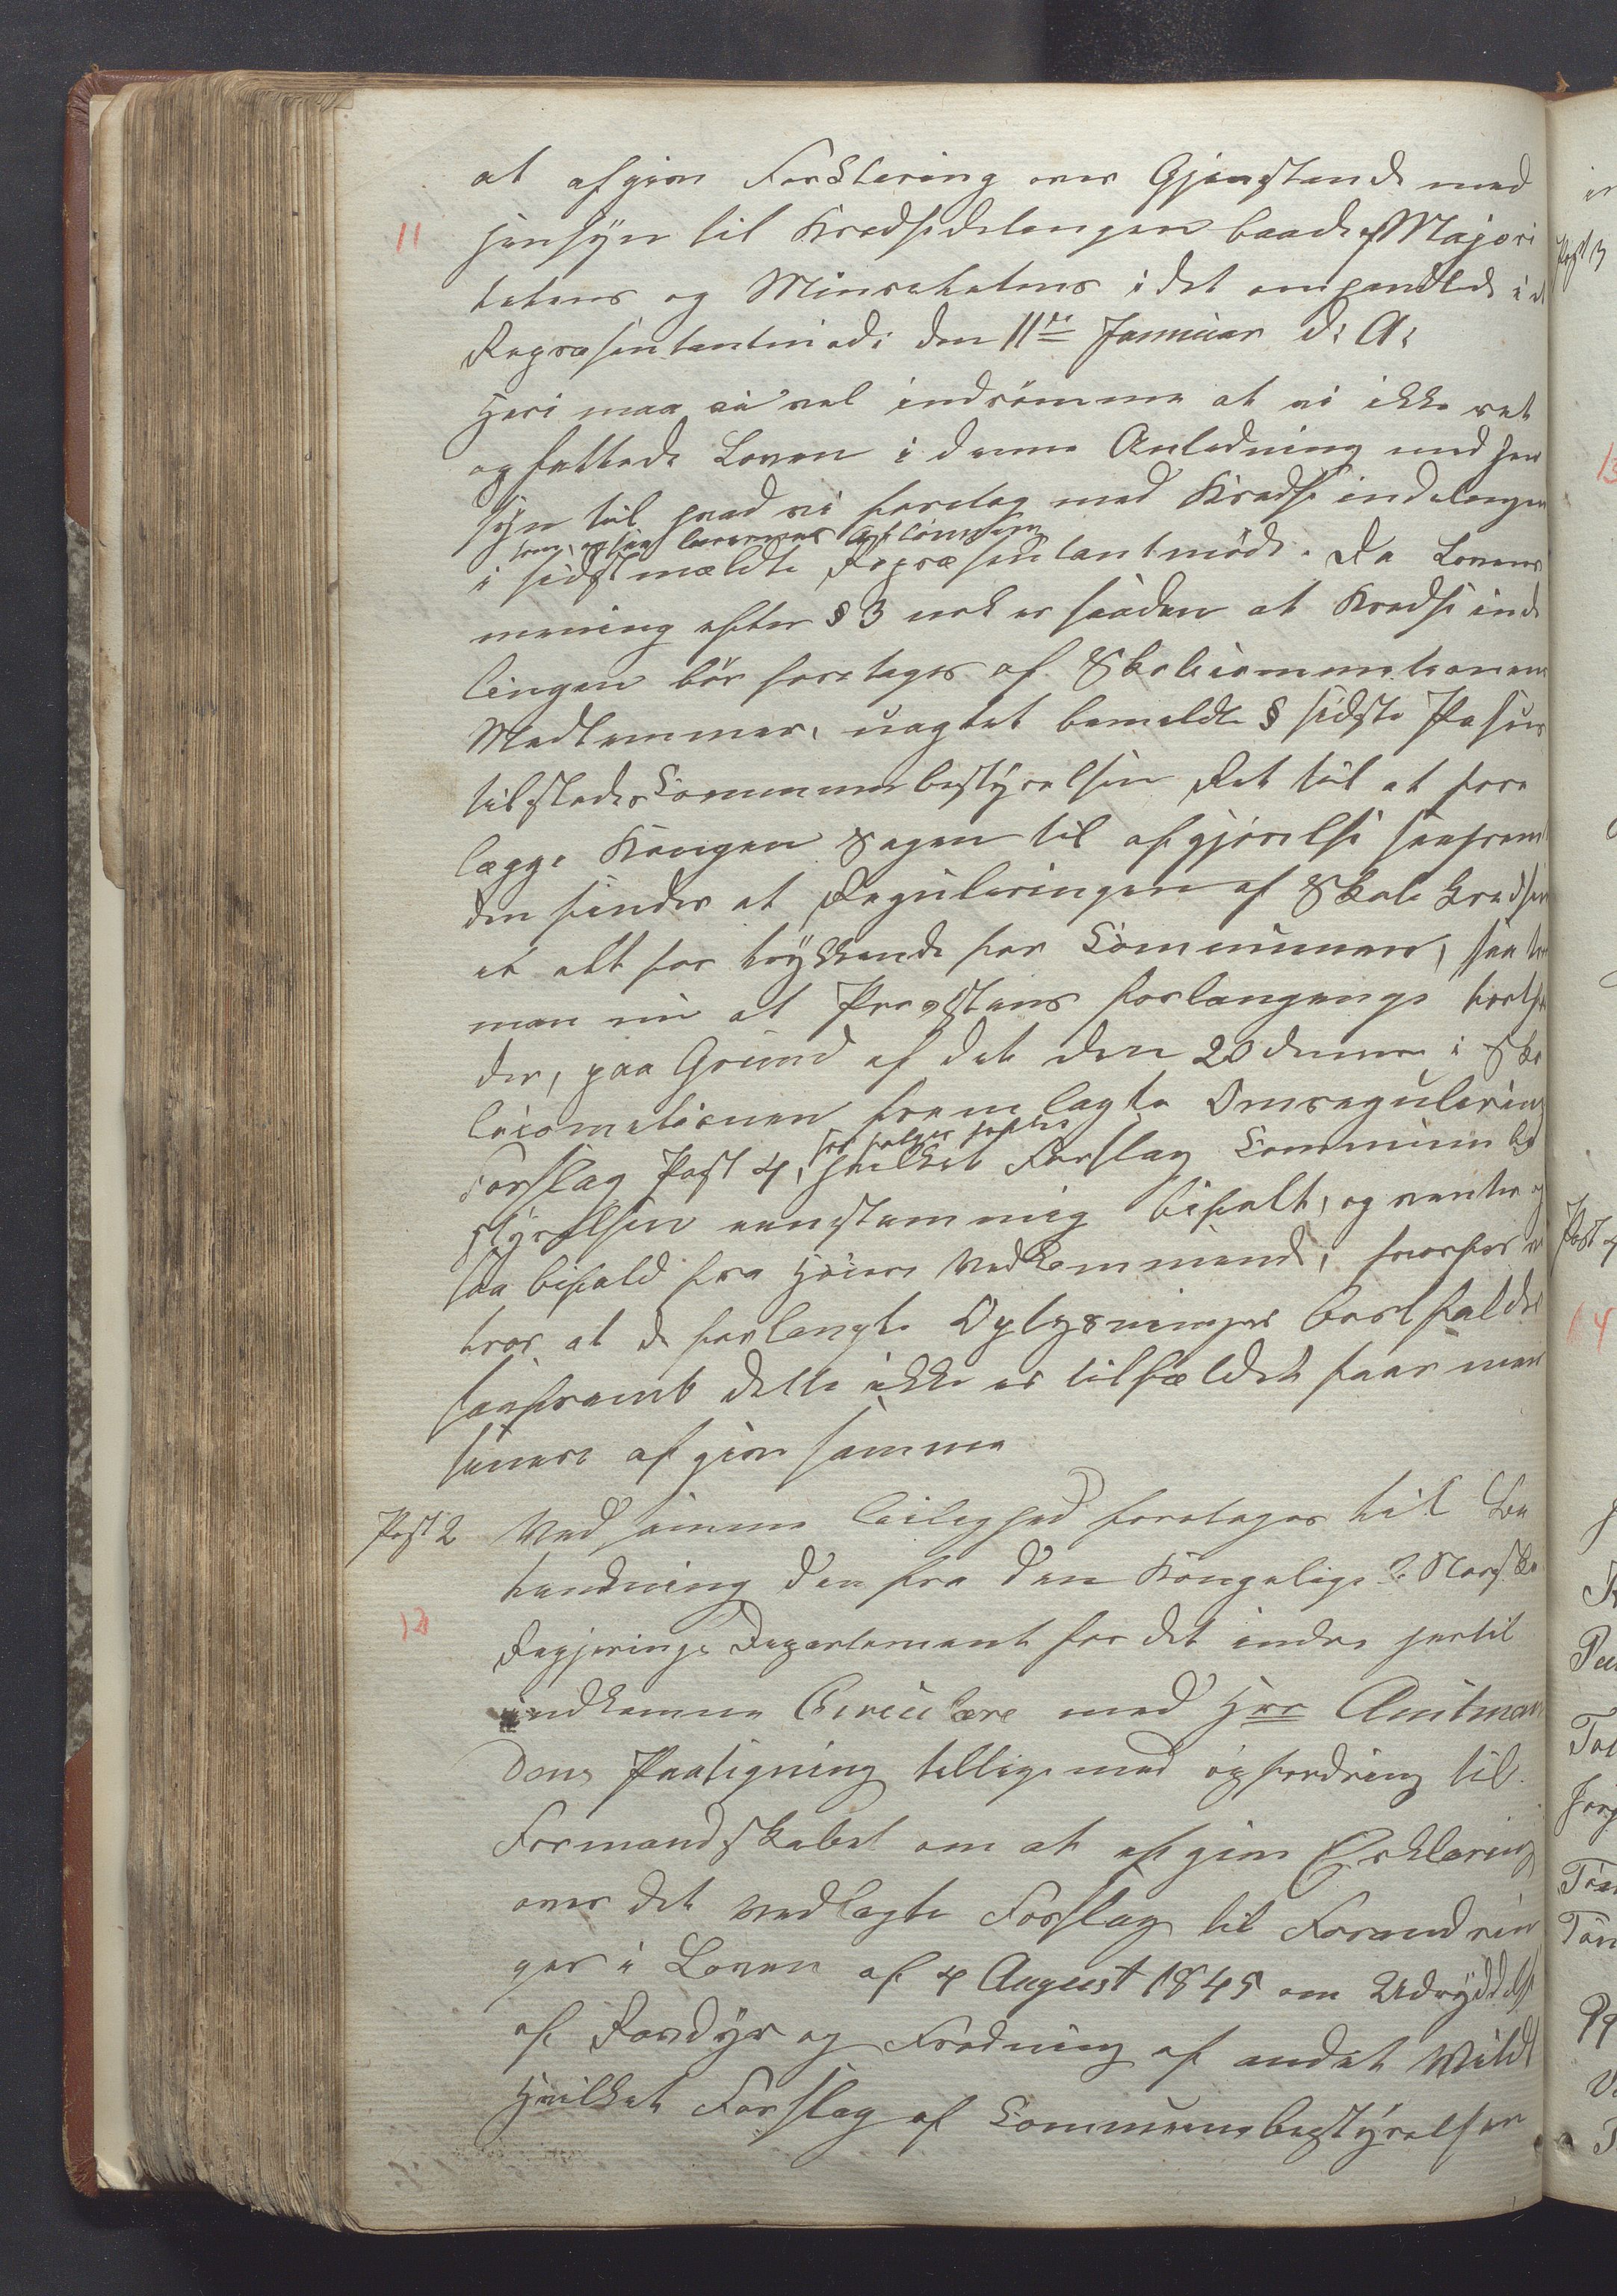 at afgive Forklaring over Gjenstande med
11 hensÿn til Kredsedelengen baade af Majori
tetens og Minoretetens i det omhandlede i d
Repræsentantmøde den 11te Januar d: A:
Heri maa vi vel indrømme at vi ikke ret
opfattede Loven i denne Anledning med hen
syn til hvad vi foretog med Kredse indelengen
som ogsaa lærernes Aflönning
i sidstmældte Repræsentantmöde. Da Lovens
mening efter § 3 nok er saadan at Kredse ind
lingen bör foretages af Skolecommmetionens
Medlemmer, uagtet bemeldte § sidste Pasus
tilsteder Communebestÿrelsen Ret til at fore
lægge Kongen Sagen til afgjörelse saafremt
den finder at Reguleringen af Skole Kredsen
er alt for trÿkkende for Communen,
man nu at Provstens forlangende bortfa
der, paa Grund af det den 20 dennes i Sko
lecometionen fremlagte Omregulering
her følger hoslis
Forslag Post 4, hvilket Forslag Commune be
styrelsen eenstemmig bifalt, og venter og
saa bifald fra Höiere Vedkommende, hvorfor vi
tror at de forlangte Oplysninger bortfalder
saafremt dette ikke er tilfældet faar man
senere afgive samme
Post 2 Ved samme leilighed foretages til Be
tenkning den fra den Kongelige Norske
12 Regjerings Departement for det indre hertil
indkomne Circulære med Hrr Amtman
dens Paategning tillige med opfordring til
Formandskabet om at afgive Erklæring
over det vedlagte Forslag til Forandrin
ger i Loven af 4 August 1845 om Udrÿddelse
af Rovdÿr og Fredning af andet Vildt
Hvilket Forslag af Communebestÿrelsen
Post 3
13
Post 4
14